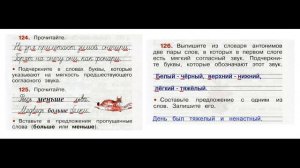 124. Прочитайте.
На зиму прилетают зимой снегири.
Зреют на снегу они, как фонари.
• Подчеркните в словах буквы, которые
указывают на мягкость предшествующего
согласного звука.
125. Прочитайте.
Лиса меньше льва.
Медведь больше лисы.
• Вставьте в предложения пропущенные
слова (больше или меньше).
126. Выпишите из словаря антонимов
две пары слов, в которых в первом слове
есть мягкий согласный звук. Подчеркни-
те буквы, которые обозначают этот звук.
Белый - чёрный, верхний - нижний,
лёгкий - тяжёлый.
• Составьте предложение с одним из
слов. Запишите его.
День был тяжелый и ненастный.